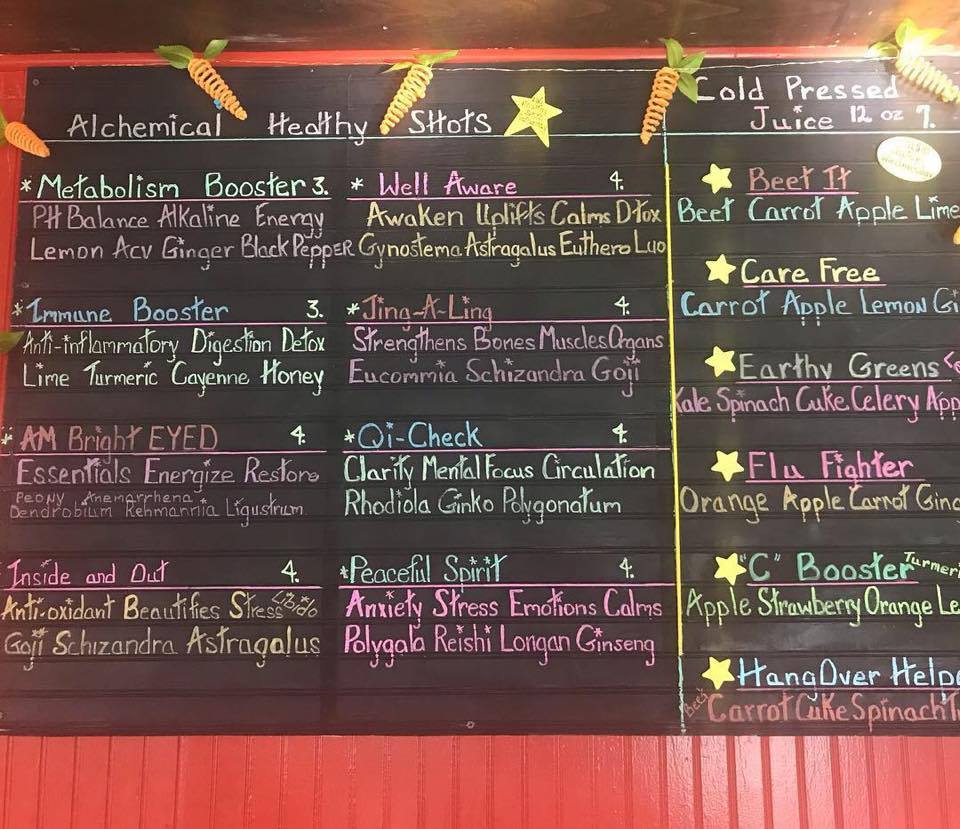 Alchemical Healthy SHots
* Metabolism Booster 3.
PH Balance Alkaline Energy
Lemon Acv Ginger Black Pepper
* Immune Booster 3.
Anti-inflammatory Digestion Detox
Lime Turmeric Cayenne Honey
* AM Bright EYED 4.
Essentials Energize Restore
Peony Anemarrhena
Dendrobium Rehmannia Ligustrum
Inside and Out 4.
Anti-oxidant Beautifies Stress Libido
Goji Schizandra Astragalus
* Well Aware 4.
Awaken Uplifts Calms Dtox
Gynostema Astragalus Euthero Luo
* Jing-A-Ling 4.
Strengthens Bones Muscles Organs
Eucommia Schizandra Goji
* Qi-Check 4.
Clarity Mental Focus Circulation
Rhodiola Ginko Polygonatum
* Peaceful Spirit 4.
Anxiety Stress Emotions Calms
Polygala Reishi Longan Ginseng
Cold Pressed
Juice 12 oz 7.
Beet It
Beet Carrot Apple Lime
Care Free
Carrot Apple Lemon Gi
Earthy Greens
Kale Spinach Cuke Celery App
Flu Fighter
Orange Apple Carrot Ging
"C" Booster Turmeri
Apple Strawberry Orange Le
HangOver Helpe
Beet Carrot Cuke Spinach T